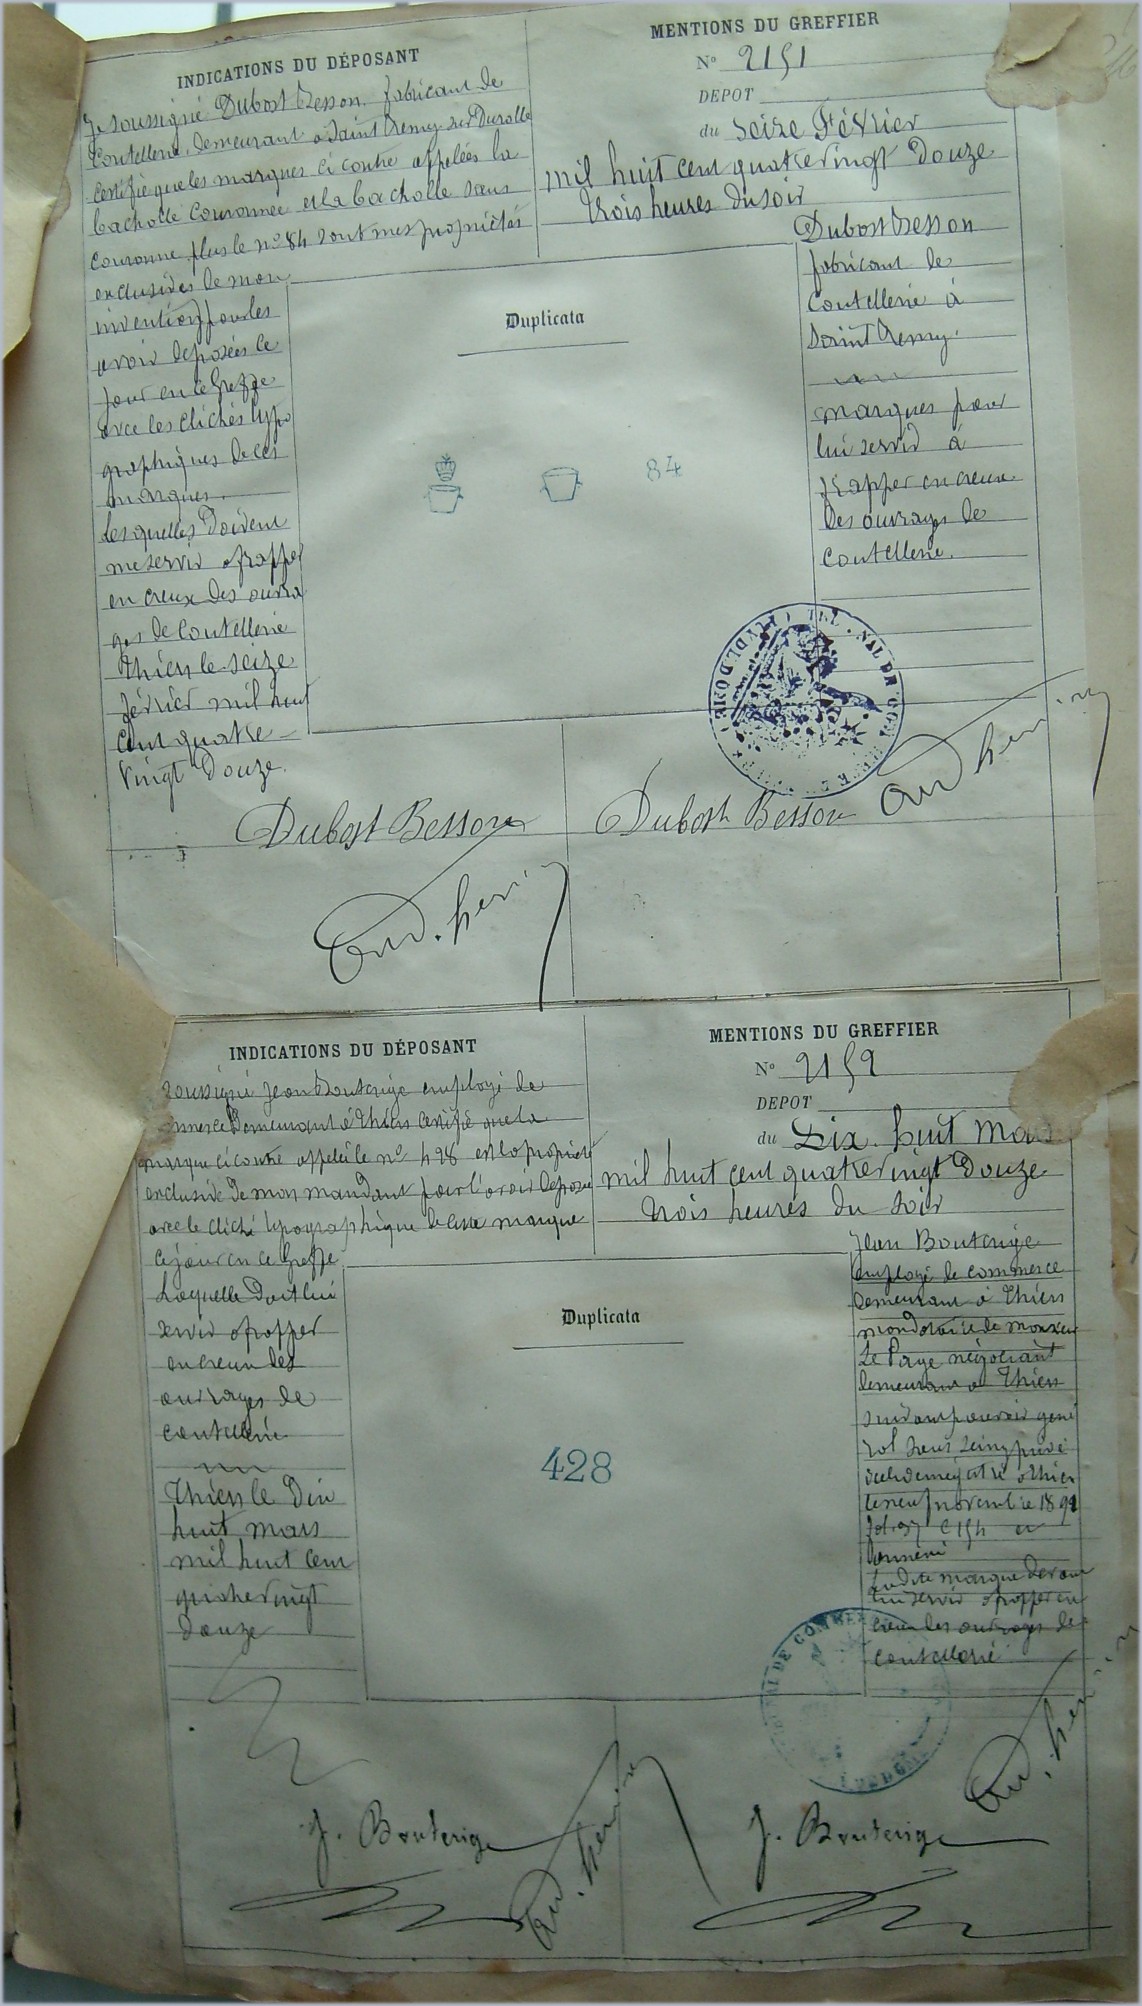 INDICATIONS DU DÉPOSANT
Je soussigné Dubost Besson fabricant de
Coutellerie, demeurant à Saint Remy sur Durolle
certifie que les marques ci contre appelées la
bacholle Couronnée et la bacholle sans
couronne plus le no 84 sont mes propriétés
exclusives de mon
invention pour les
avoir déposées ce
jour en ce Greffe
avec les clichés typo
graphiques de ces
marques.
Lesquelles doivent
me servir à frapper
en creux des ouvra
ges de Coutellerie
Thiers le seize
février mil huit
cent quatre
vingt Douze.
MENTIONS DU GREFFIER
No 2151
DEPOT
du seize Février
mil huit cent quatre vingt Douze
trois heures du soir
Dubost Besson
fabricant de
Coutellerie à
Saint Remy.
marques pour
lui servir à
frapper en creux
des ouvrages de
Coutellerie.
Duplicata
84
Dubost Besson
Dubost Besson
INDICATIONS DU DÉPOSANT
soussigné Jean Bouterige employé de
commerce Demeurant à Thiers Certifie que la
marque ci contre appelée le no 428 est la propriété
exclusive de mon mandant pour l'avoir déposée
avec le cliché typographique de cette marque
ce jour en ce Greffe
Laquelle doit lui
servir à frapper
en creux des
ouvrages de
coutellerie
Thiers le Dix
huit mars
mil huit cent
quatre vingt
douze
MENTIONS DU GREFFIER
No 2152
DEPOT
du Dix huit Mars
mil huit cent quatre vingt Douze
trois heures du soir
Jean Bouterige
employé de commerce
demeurant à Thiers
mandataire de monsieur
Le Page négociant
demeurant à Thiers
suivant pouvoir géné
ral sous seing privé
enregistré à Thiers
le neuf novembre 1891
La dite marque devant
lui servir à frapper en
creux des ouvrages de
coutellerie
Duplicata
428
TRIBUNAL DE COMMERCE
J. Bouterige
J. Bouterige